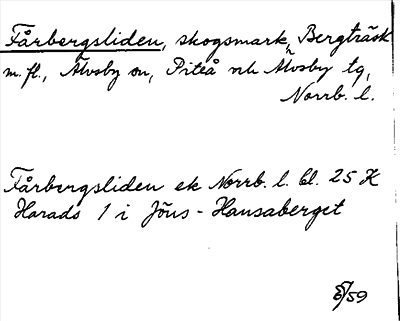 Fårbergsliden, skogsmark, Bergträsk
m. fl., Älvsby sn, Piteå o. Älvsby tg,
Norrb. l.
Fårbergsliden ek Norrb. l. bl. 25 K
Harads 1 i Jöus-Hansaberget
/59